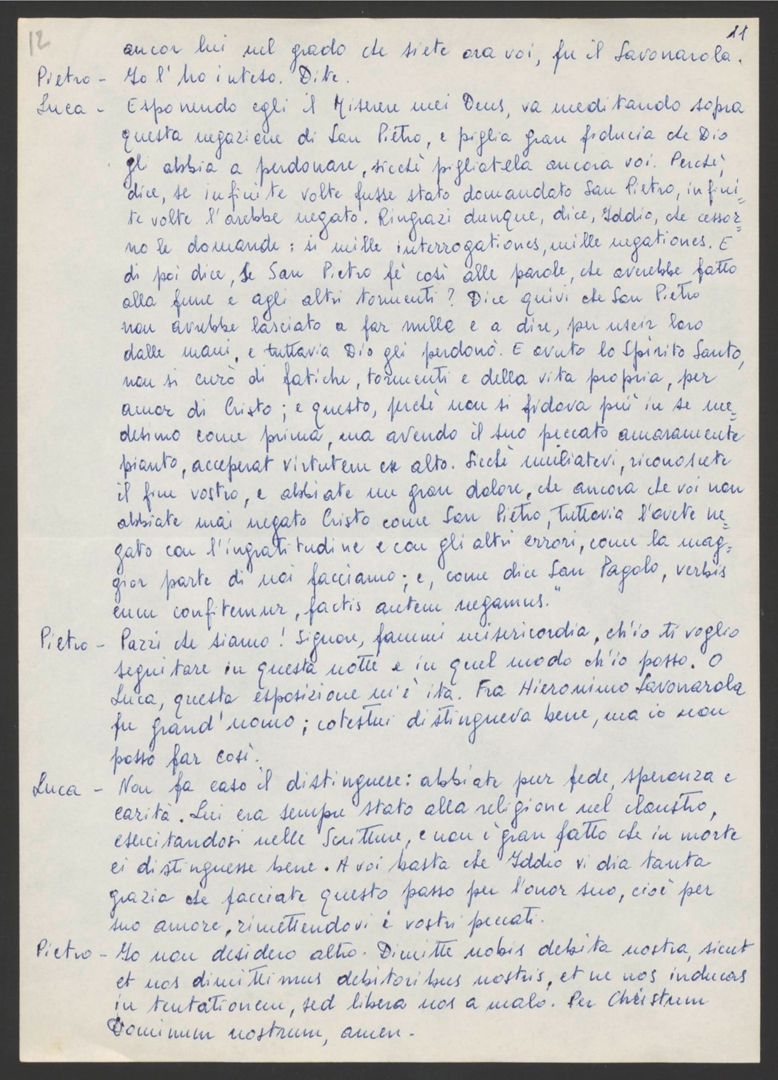 12
11
ancor lui nel grado che siete ora voi, fu il Savonarola.
Pietro - Io l'ho inteso. Dite.
Luca - Esponendo egli il Miserere mei Deus, va meditando sopra
questa negazione di San Pietro, e piglia gran fiducia che Dio
gli abbia a perdonare, sicchè pigliatela ancora voi. Perchè,
dice, se infinite volte fusse stato domandato San Pietro, infini=
te volte l'arebbe negato. Ringrazi dunque, dice, Iddio, che cessor=
no le domande: si mille interrogationes, mille negationes. E
di poi dice, Se San Pietro fè così alle parole, che averebbe fatto
alla fune e agli altri tormenti? Dice quivi che San Pietro
non avrebbe lasciato a far nulla e a dire, per uscir loro
dalle mani, e tuttavia Dio gli perdonò. E avuto lo Spirito Santo,
non si curò di fatiche, tormenti e della vita propria, per
amor di Cristo; e questo, perchè non si fidava più in se me=
desimo come prima, ma avendo il suo peccato amaramente
pianto, acceperat virtutem ex alto. Sicchè umiliatevi, riconoscete
il fine vostro, e abbiate un gran dolore, che ancora che voi non
abbiate mai negato Cristo come San Pietro, tuttavia l'avete ne=
gato con l'ingratitudine e con gli altri errori, come la mag=
gior parte di noi facciamo; e, come dice San Pagolo, verbis
eum confitemur, factis autem negamus."
Pietro - Pazzi che siamo! Signore, fammi misericordia, ch'io ti voglio
seguitare in questa notte e in quel modo ch'io posso. O
Luca, questa esposizione mi è ita. Fra Hieronimo Savonarola
fu grand'uomo; cotestui distingueva bene, ma io non
posso far così.
Luca - Non fa caso il distinguere: abbiate pur fede, speranza e
carità. Lui era sempre stato alla religione nel claustro,
esercitandosi nelle Scritture, e non è gran fatto che in morte
ei distinguesse bene. A voi basta che Iddio vi dia tanta
grazia che facciate questo passo per l'onor suo, cioè per
suo amore, rimettendovi e' vostri peccati.
Pietro - Io non desidero altro. Dimitte nobis debita nostra, sicut
et nos dimittimus debitoribus nostris, et ne nos inducas
in tentationem, sed libera nos a malo. Per Christum
Dominum nostrum, amen.